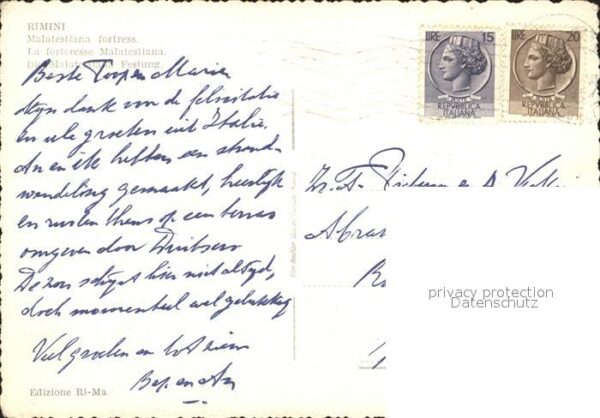 RIMINI
Malatestiana fortress.
La forteresse Malatestiana.
Die Malatestiana Festung.
LIRE 15
REPVBBLICA
ITALIANA
LIRE 20
REPVBBLICA
ITALIANA
Beste en Marie
dank voor de felicitatie
en vele groeten uit Italië,
An en ik hebben een strand-
wandeling gemaakt, heerlijk
en rusten thans op een terras
omgeven door Duitsers
De zon schijnt hier niet altijd,
doch momenteel wel gelukkig
Veel groeten en tot ziens
Bep en An
en A.
privacy protection
Datenschutz
Edizione RI-Ma